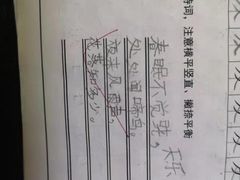 诗词，注意横平竖直、撇捺平衡
乐乐
春眠不觉晓，
处处闻啼鸟。
夜来风雨声，
花落知多少。